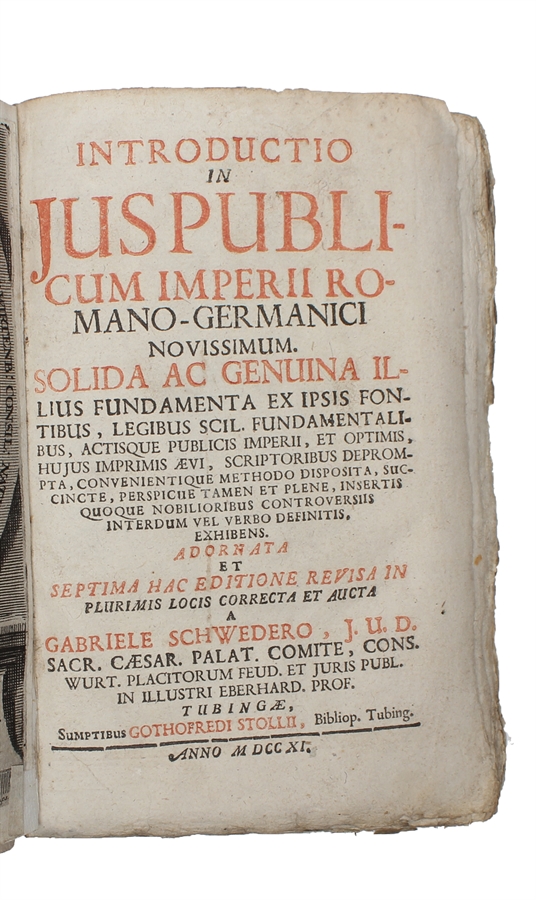 INTRODUCTIO
IN
JUS PUBLI-
CUM IMPERII RO-
MANO-GERMANICI
NOVISSIMUM.
SOLIDA AC GENUINA IL-
LIUS FUNDAMENTA EX IPSIS FON-
TIBUS, LEGIBUS SCIL. FUNDAMENTALI-
BUS, ACTISQUE PUBLICIS IMPERII, ET OPTIMIS,
HUJUS IMPRIMIS ÆVI, SCRIPTORIBUS DEPROM-
PTA, CONVENIENTIQUE METHODO DISPOSITA, SUC-
CINCTE, PERSPICUE TAMEN ET PLENE, INSERTIS
QUOQUE NOBILIORIBUS CONTROVERSIIS
INTERDUM VEL VERBO DEFINITIS,
EXHIBENS.
ADORNATA
ET
SEPTIMA HAC EDITIONE REVISA IN
PLURIMIS LOCIS CORRECTA ET AUCTA
A
GABRIELE SCHWEDERO, J. U. D.
SACR. CÆSAR. PALAT. COMITE, CONS.
WURT. PLACITORUM FEUD. ET JURIS PUBL.
IN ILLUSTRI EBERHARD. PROF.
TUBINGÆ,
SUMPTIBUS GOTHOFREDI STOLLII, Bibliop. Tubing.
ANNO MDCCXI.